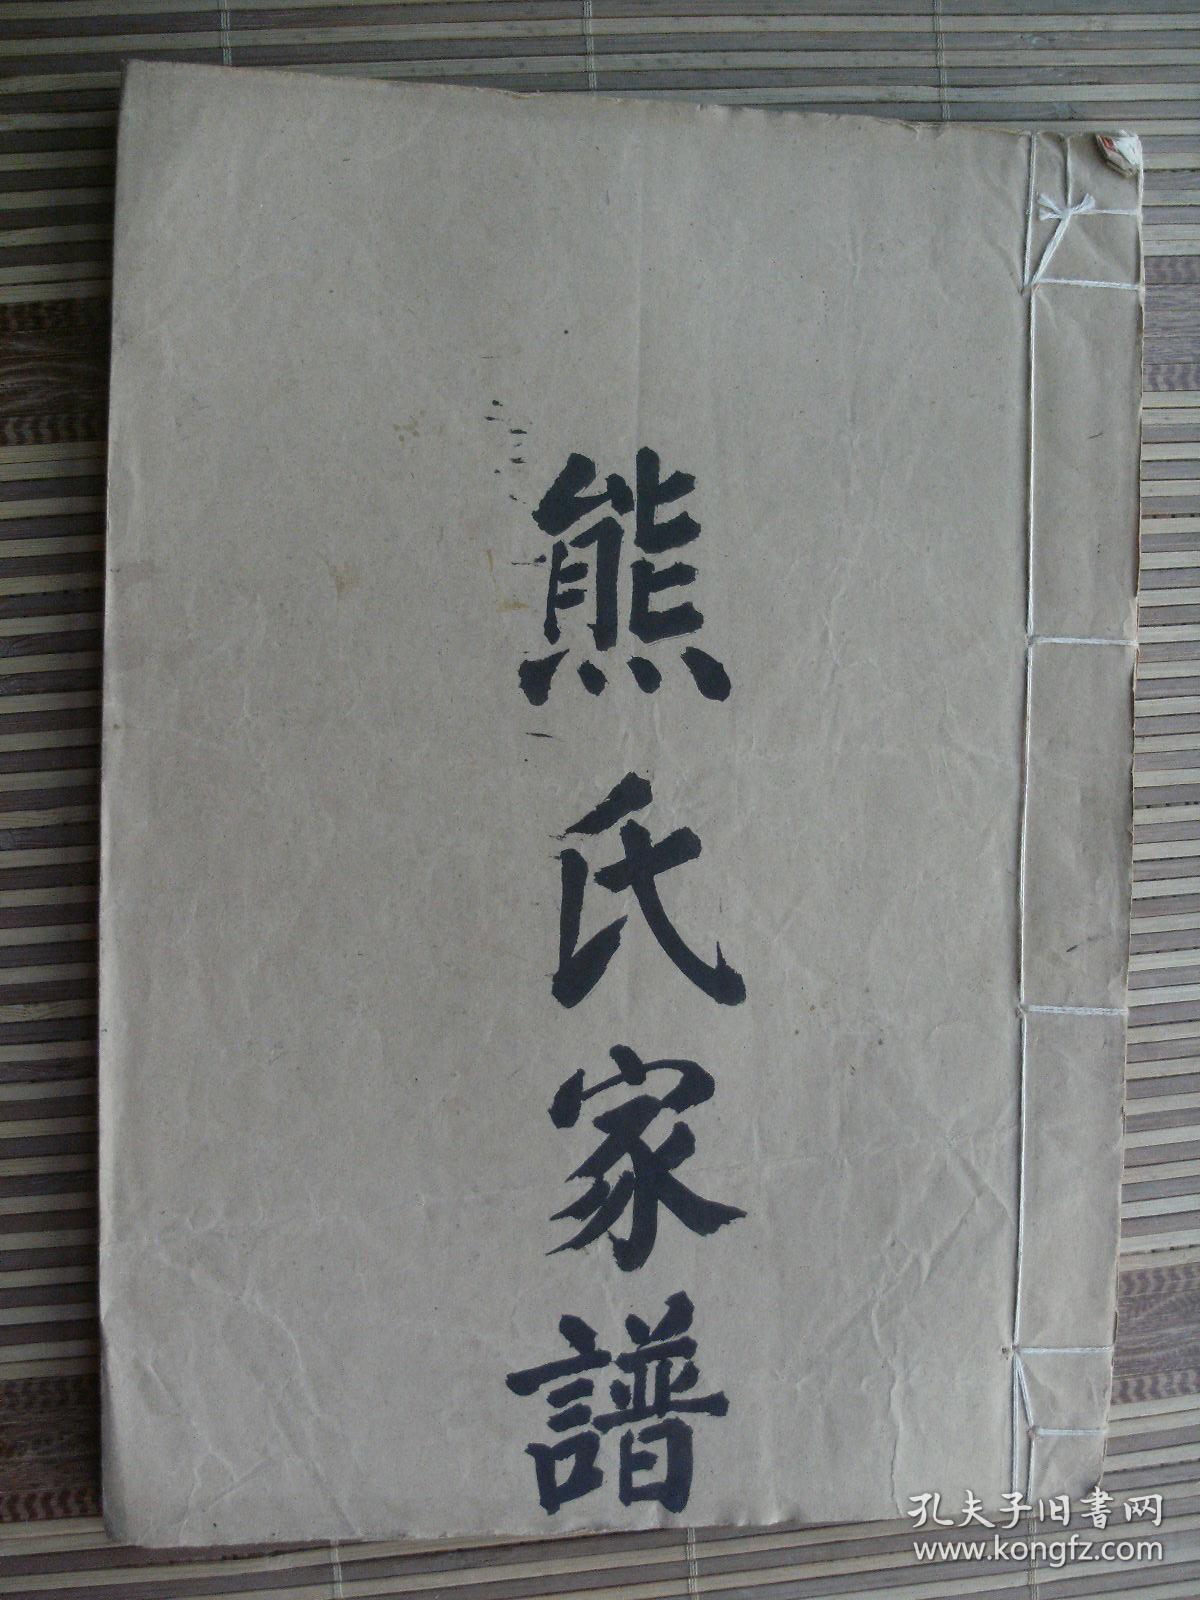 熊氏家譜
孔夫子旧書网
www.kongfz.com